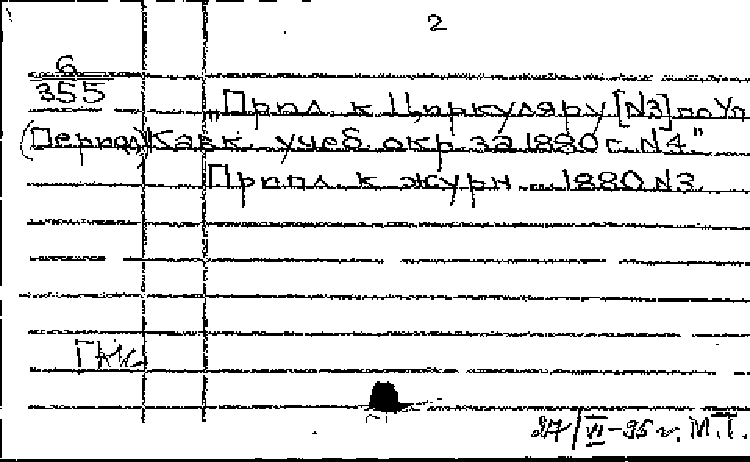 2
6
355
„Прил. к Циркуляру [N3] по Уп
(Период) Кавк. учеб. окр. за 1880 г. N4."
Прил. к журн. ... 1880 N3.
/VI-95 г. М.Т.